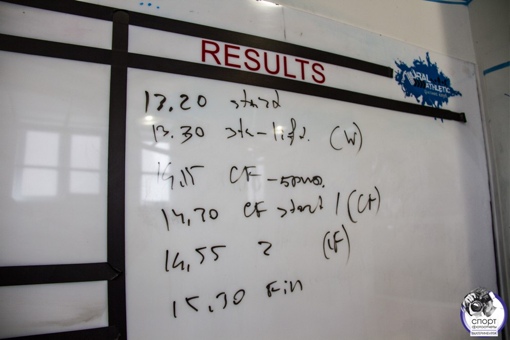 RESULTS
URAL
ATHLETIC
13.20 stand
13.30 (W)
14.15 CF
14,20 CF start / (CF)
14,55 2 (CF)
15.30 Fin
спорт